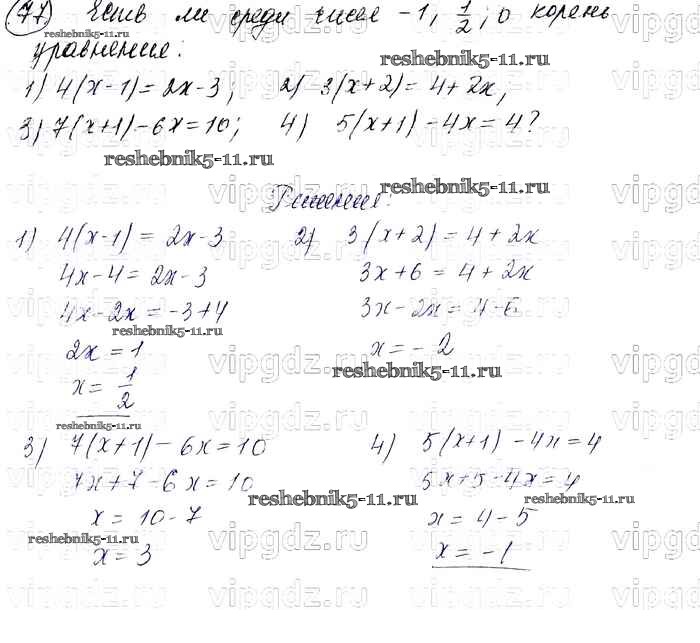 77) Есть ли среди чисел -1, 1/2; 0 корень
уравнения:
1) 4(x-1)=2x-3; 2) 3(x+2)=4+2x;
3) 7(x+1)-6x=10; 4) 5(x+1)-4x=4?
reshebnik5-11.ru
Решение:
1) 4(x-1)=2x-3
4x-4=2x-3
4x-2x=-3+4
2x=1
x=1/2
2) 3(x+2)=4+2x
3x+6=4+2x
3x-2x=4-6
x=-2
3) 7(x+1)-6x=10
7x+7-6x=10
x=10-7
x=3
4) 5(x+1)-4x=4
5x+5-4x=4
x=4-5
x=-1
vipgdz.ru